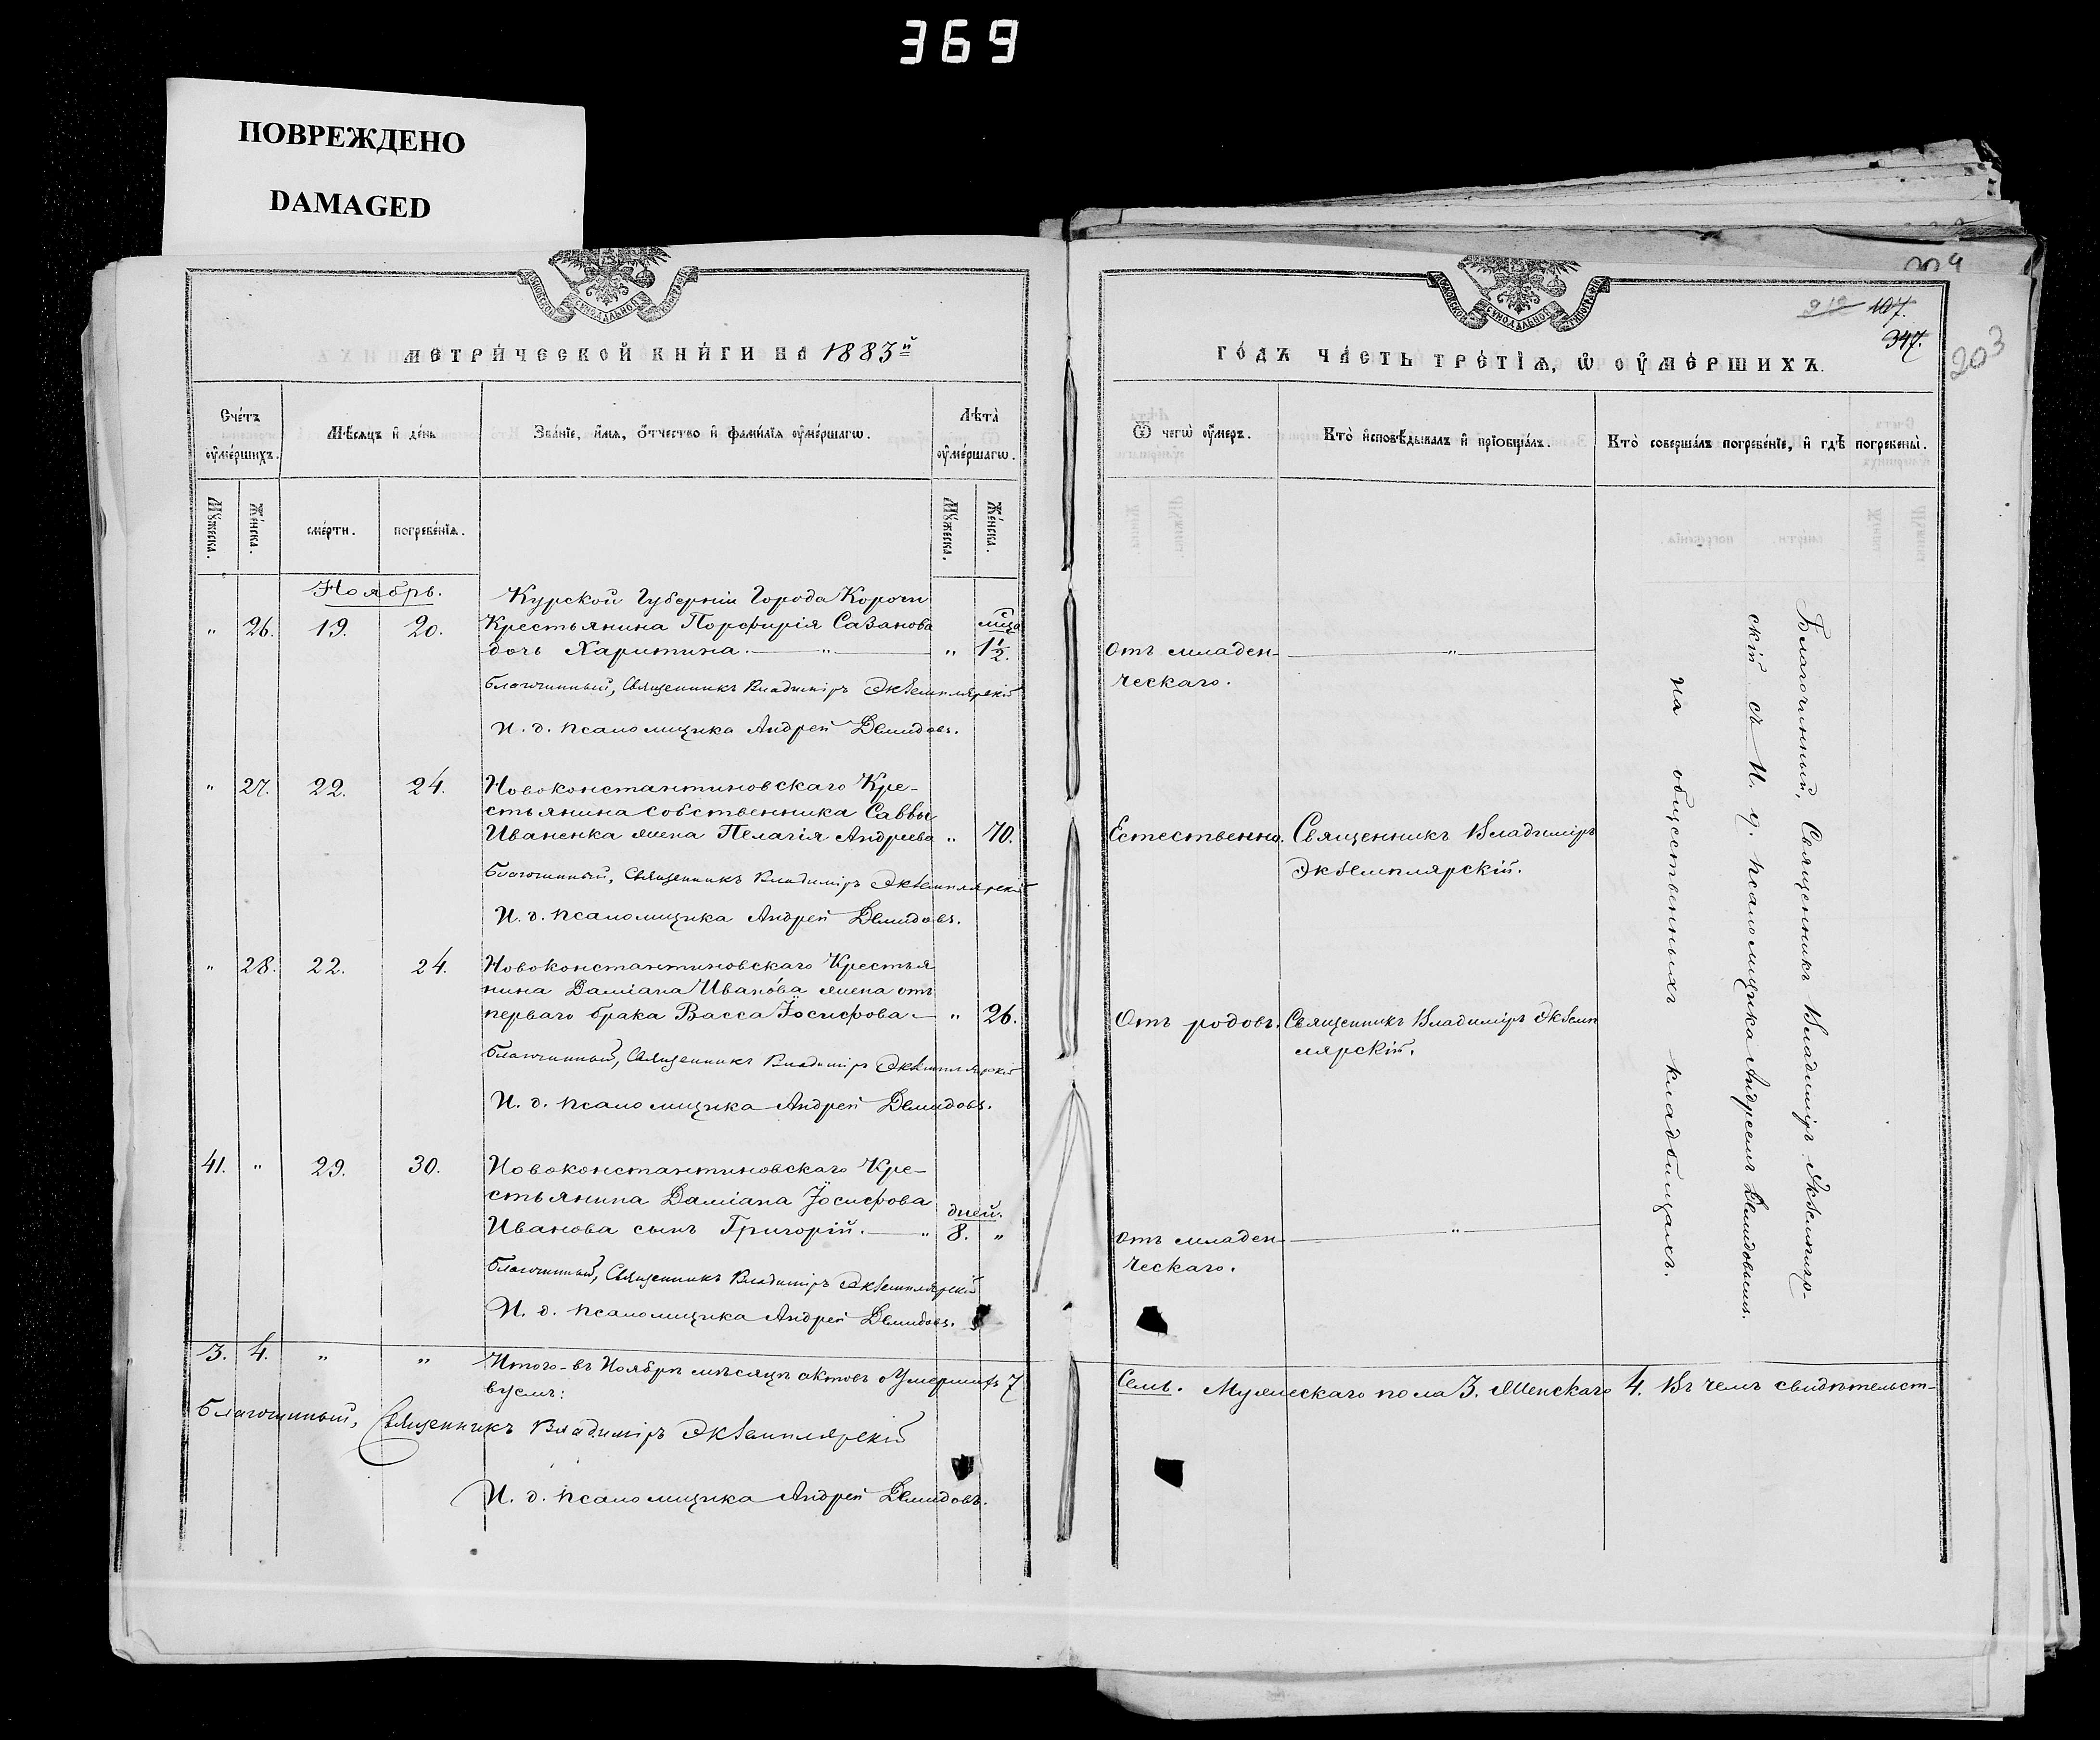 369
ПОВРЕЖДЕНО
DAMAGED
МЕТРИЧЕСКОЙ КНИГИ НА 1883й
Счетъ умершихъ.
Мѣсяцъ и день
Званіе, имя, отчество и фамилія умершагѡ.
Лѣта умершагѡ.
Мужеска.
Женска.
смерти.
погребенія.
Мужеска.
Женска.
Ноябрь.
Курской Губерніи Города Корочи
" 26. 19. 20. Крестьянина Порфирія Сазанова мѣсца
дочь Харитина. — " — " 1½.
Благочинный, Священникъ Владиміръ Экземплярскій
И. д. псаломщика Андрей Демидовъ.
" 27. 22. 24. Новоконстантиновскаго Кре-
стьянина собственника Саввы
Иваненка жена Пелагія Андреева " 70.
Благочинный, Священникъ Владиміръ Экземплярскій
И. д. псаломщика Андрей Демидовъ.
" 28. 22. 24. Новоконстантиновскаго Крестья
нина Даміана Иванова жена отъ
перваго брака Васса Іосифова — " 26.
Благочинный, Священникъ Владиміръ Экземплярскій
И. д. псаломщика Андрей Демидовъ.
41. " 29. 30. Новоконстантиновскаго Кре-
стьянина Даміана Іосифова
дней.
Иванова сынъ Григорій. — " 8. "
Благочинный, Священникъ Владиміръ Экземплярскій
И. д. псаломщика Андрей Демидовъ.
3. 4. " " Итого - въ Ноябрѣ мѣсяцѣ актовъ о Умершихъ 7
Благочинный, Священникъ Владиміръ Экземплярскій
И. д. псаломщика Андрей Демидовъ.
204
107.
347.
203
ГОДЪ ЧАСТЬ ТРЕТІѦ, Ѡ УМЕРШИХЪ.
Ѿ чегѡ умеръ.
Кто исповѣдывалъ и пріобщалъ.
Кто совершалъ погребеніе, и гдѣ погребены.
отъ младен- — " —
ческаго.
Естественно. Священникъ Владиміръ
Экземплярскій.
Отъ родовъ. Священникъ Владиміръ Экземп
лярскій.
отъ младен- — " —
ческаго.
Благочинный, Священникъ Владиміръ Экземпляр-
скій съ И. д. псаломщика Андреемъ Демидовымъ.
на общественныхъ кладбищахъ.
Семь. Мужескаго пола 3. Женскаго 4. Въ чемъ свидѣтельст-